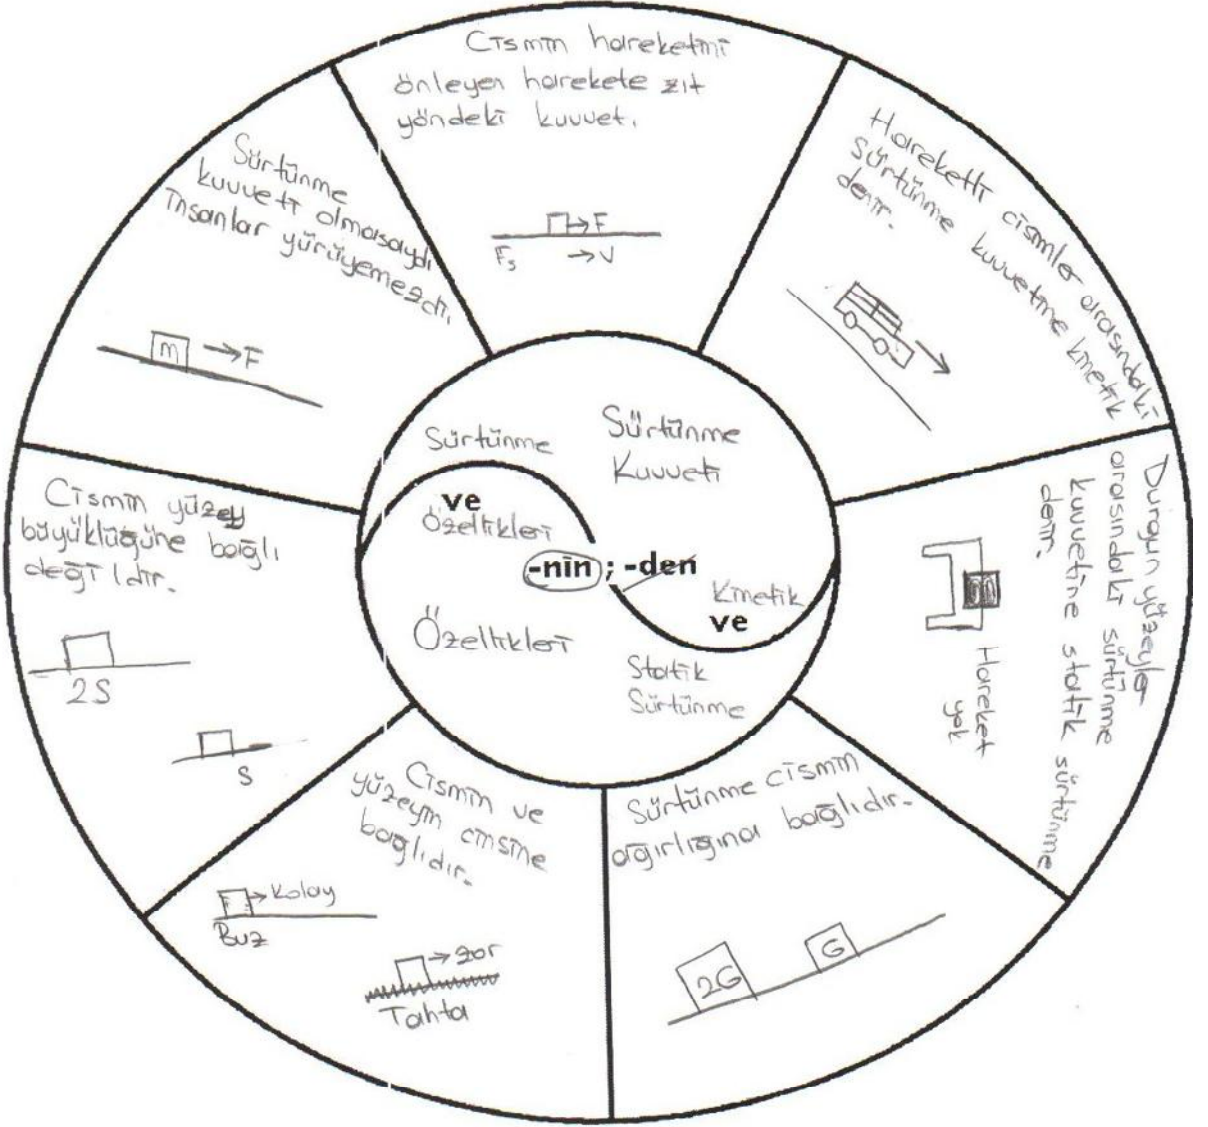 Cismin hareketini
önleyen harekete zıt
yöndeki kuvvet.
F
Fs
V
Hareketli cisimler arasındaki
sürtünme kuvvetine kinetik
denir.
Durgun yüzeyler
arasındaki sürtünme
kuvvetine statik sürtünme
denir.
Hareket
yok
Sürtünme cismin
ağırlığına bağlıdır.
2G
G
Cismin ve
yüzeyin cinsine
bağlıdır.
Kolay
Buz
zor
Tahta
Cismin yüzey
büyüklüğüne bağlı
değildir.
2S
S
Sürtünme
kuvveti olmasaydı
insanlar yürüyemezdi.
m
F
Sürtünme
ve
Özellikleri
Sürtünme
Kuvveti
-nin ; -den
Özellikleri
Kinetik
ve
Statik
Sürtünme